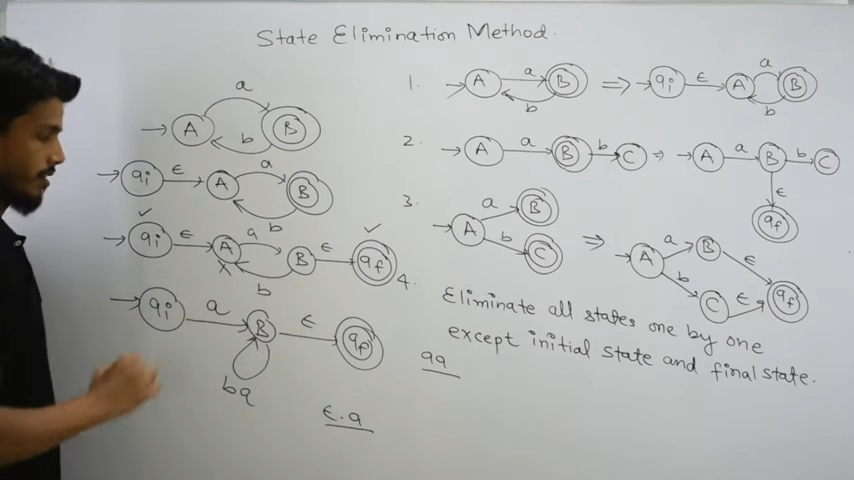 State Elimination Method.
a
A B
b
qi ε A a B
b
qi ε A a B ε qf
b
qi a B ε qf
ba
ε.a
1. A a B ⇒ qi ε A a B
b b
2. A a B b C ⇒ A a B b C
ε
qf
3. A a B ⇒ A a B ε qf
b C b C ε
4. Eliminate all states one by one
except initial state and final state.
qq